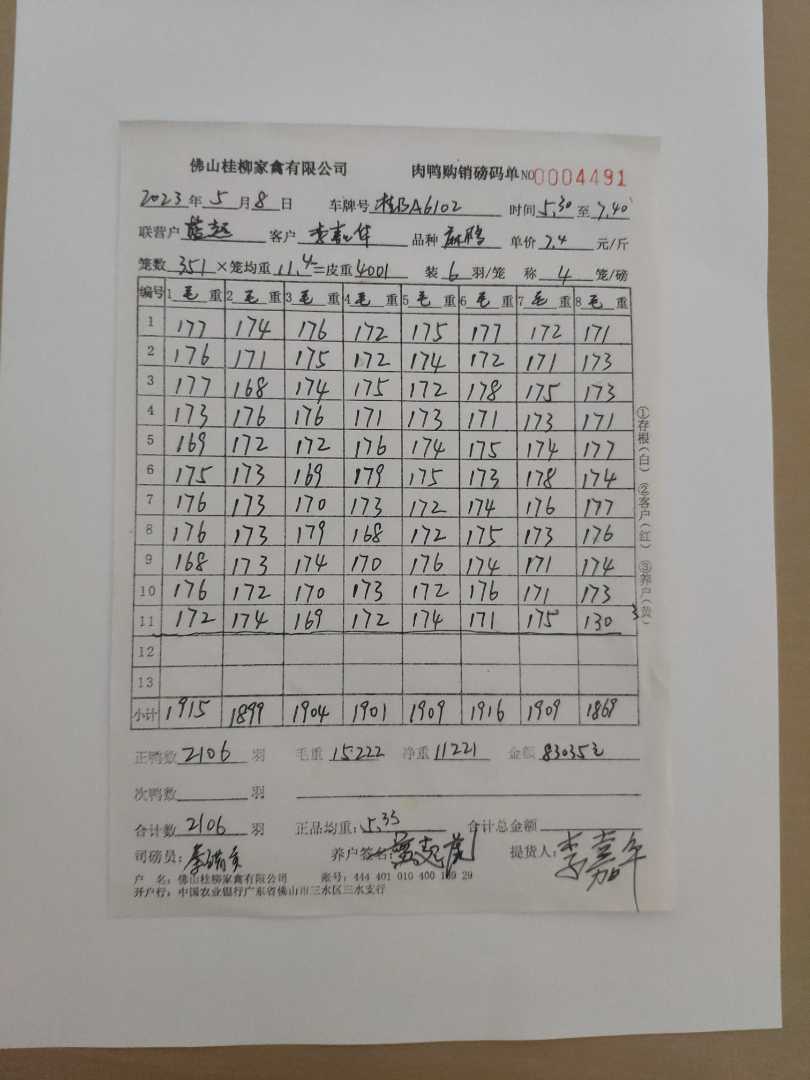 佛山桂柳家禽有限公司 肉鸭购销磅码单 NO 0004491
2023年5月8日 车牌号 桂BA6102 时间 5.30 至 7.40
联营户 客户 李嘉华 品种 麻鸭 单价 7.4 元/斤
笼数 351 ×笼均重 11.4 =皮重 4001 装 6 羽/笼 称 4 笼/磅
编号 1 毛 重 2 毛 重 3 毛 重 4 毛 重 5 毛 重 6 毛 重 7 毛 重 8 毛 重
1 177 174 176 172 175 177 172 171
2 176 171 175 172 174 172 171 173
3 177 168 174 175 172 178 175 173
4 173 176 176 171 173 171 173 171
5 169 172 172 176 174 175 174 177
6 175 173 169 179 175 173 178 174
7 176 173 170 173 172 174 176 177
8 176 173 179 168 172 175 173 176
9 168 173 174 170 176 174 171 174
10 176 172 170 173 172 176 171 173
11 172 174 169 172 174 171 175 130 3
12
13
小计 1915 1899 1904 1901 1909 1916 1909 1869
正鸭数 2106 羽 毛重 15222 净重 11221 金额 83035元
次鸭数 羽
合计数 2106 羽 正品均重: 5.33 合计总金额
司磅员: 养户签名: 提货人: 李嘉华
户 名: 佛山桂柳家禽有限公司 账号: 444 401 010 400 109 29
开户行: 中国农业银行广东省佛山市三水区三水支行
①存根(白) ②客户(红) ③养户(黄)